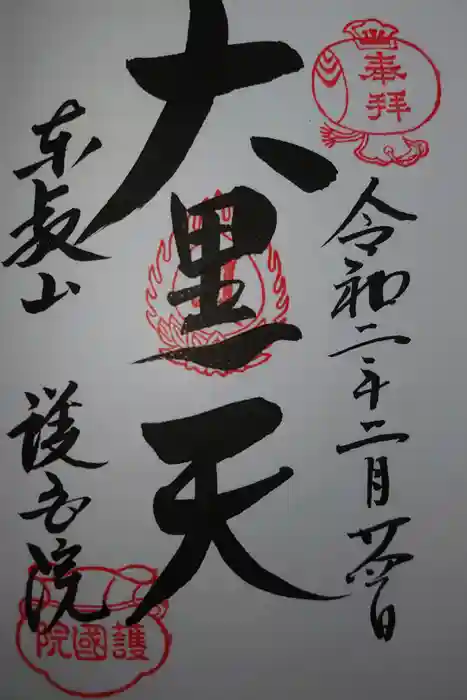 奉拝
令和二年二月廿四日
大黒天
東叡山
護国院
護國院